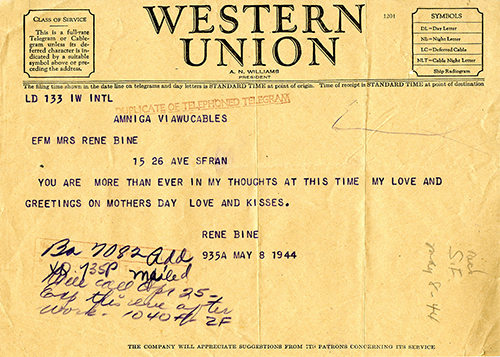 CLASS OF SERVICE
This is a full-rate
Telegram or Cable-
gram unless its de-
ferred character is in-
dicated by a suitable
symbol above or pre-
ceding the address.
WESTERN
UNION
A. N. WILLIAMS
PRESIDENT
1201
SYMBOLS
DL=Day Letter
NL=Night Letter
LC=Deferred Cable
NLT=Cable Night Letter
Ship Radiogram
The filing time shown in the date line on telegrams and day letters is STANDARD TIME at point of origin. Time of receipt is STANDARD TIME at point of destination
LD 133 IW INTL
DUPLICATE OF TELEPHONED TELEGRAM
AMNIGA VIAWUCABLES
EFM MRS RENE BINE
15 26 AVE SFRAN
YOU ARE MORE THAN EVER IN MY THOUGHTS AT THIS TIME MY LOVE AND
GREETINGS ON MOTHERS DAY LOVE AND KISSES.
RENE BINE
935A MAY 8 1944
Ba 7082 Add
735P Mailed
this eve after
work - 1040A ZF
S.F.
May 8-44
THE COMPANY WILL APPRECIATE SUGGESTIONS FROM ITS PATRONS CONCERNING ITS SERVICE